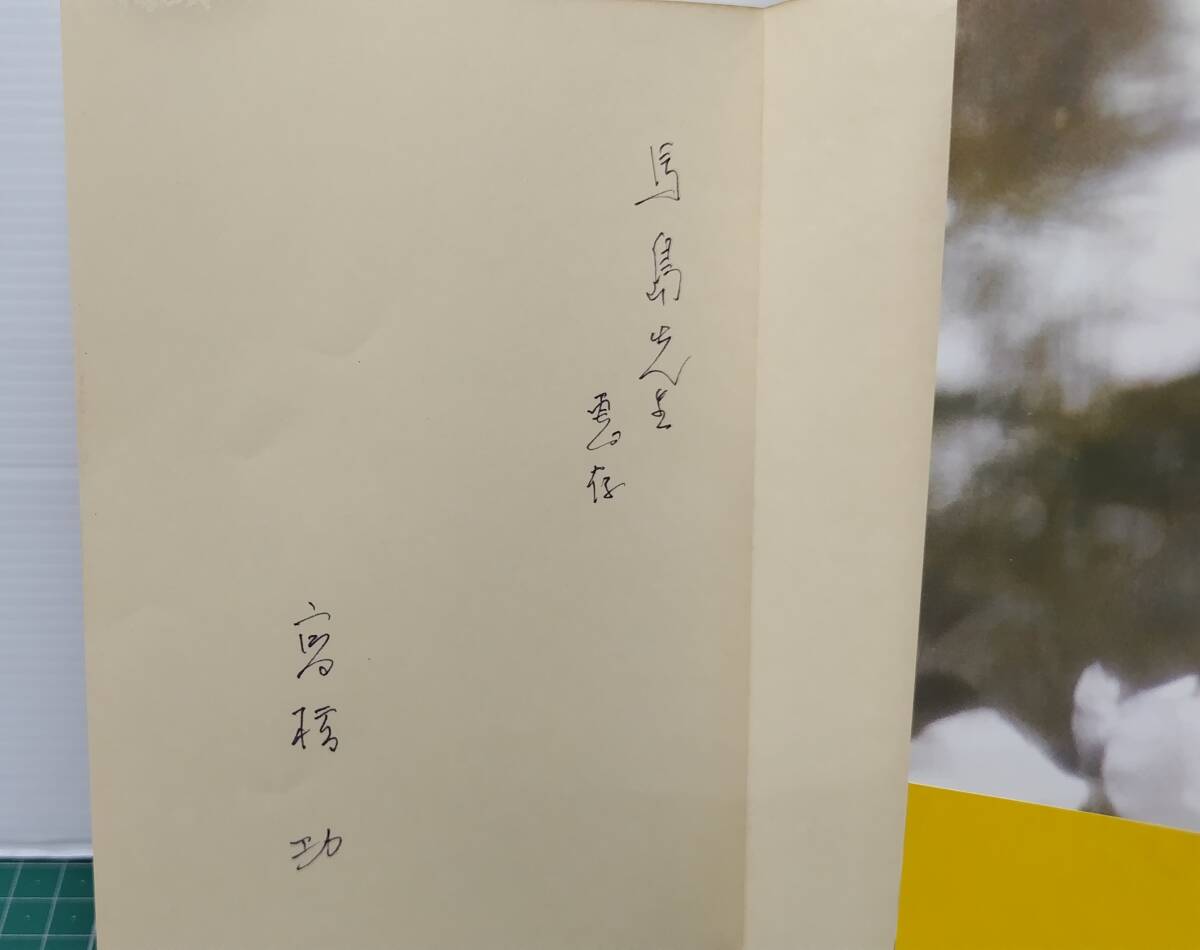 馬島先生
恵存
高橋 功